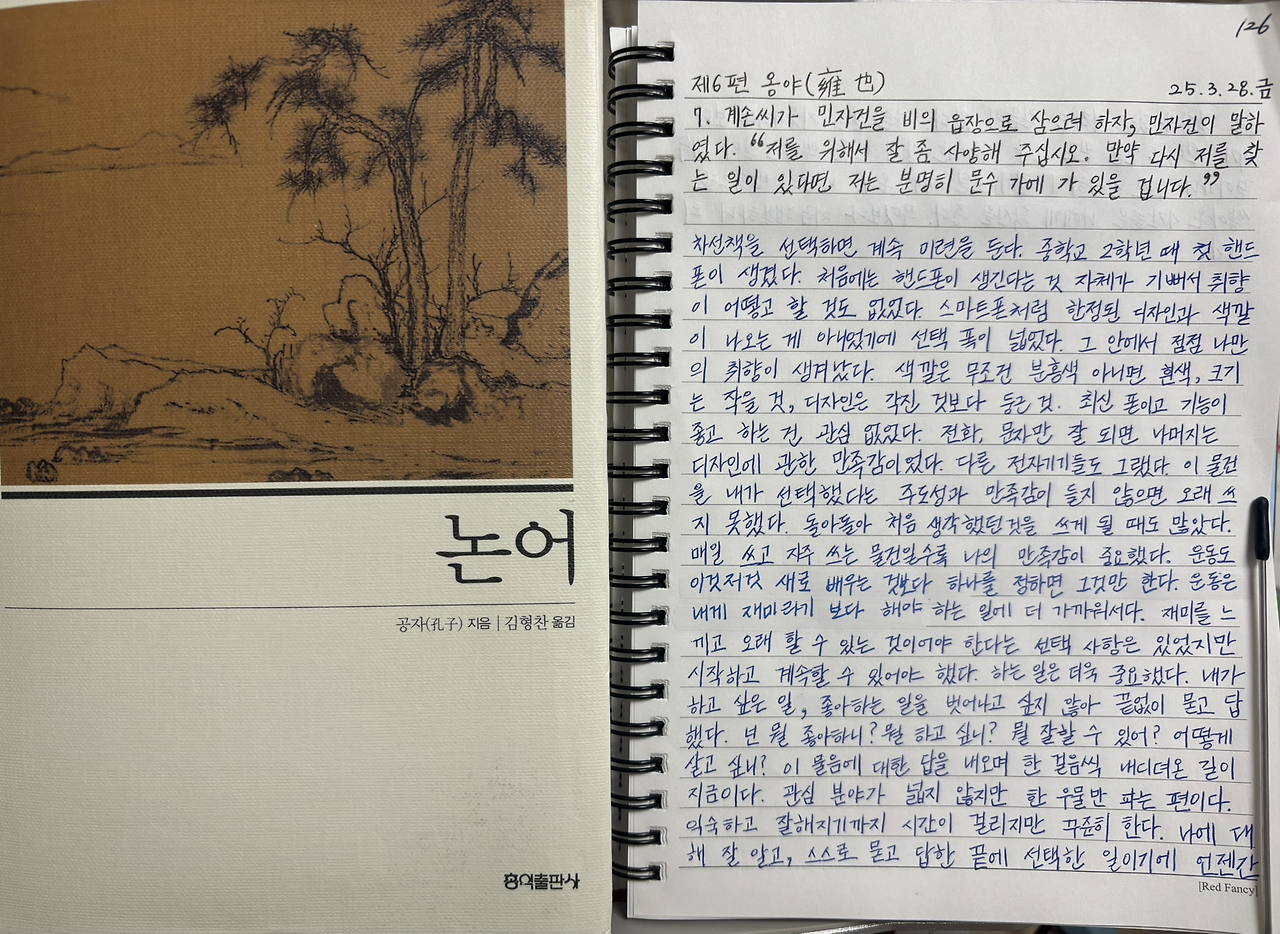 논어
공자(孔子) 지음 | 김형찬 옮김
홍익출판사
126
제6편 옹야(雍也) 25.3.28.금
7. 계손씨가 민자건을 비의 읍장으로 삼으려 하자, 민자건이 말하
였다. “저를 위해서 잘 좀 사양해 주십시오. 만약 다시 저를 찾
는 일이 있다면, 저는 분명히 문수 가에 가 있을 겁니다.”
차선책을 선택하면 계속 미련을 둔다. 중학교 2학년 때 첫 핸드
폰이 생겼다. 처음에는 핸드폰이 생긴다는 것 자체가 기뻐서 취향
이 어떻고 할 것도 없었다. 스마트폰처럼 한정된 디자인과 색깔
이 나오는 게 아니었기에 선택 폭이 넓었다. 그 안에서 점점 나만
의 취향이 생겨났다. 색깔은 무조건 분홍색 아니면 흰색, 크기
는 작을 것, 디자인은 각진 것보다 둥근 것. 최신 폰이고 기능이
좋고 하는 건 관심 없었다. 전화, 문자만 잘 되면 나머지는
디자인에 관한 만족감이었다. 다른 전자기기들도 그랬다. 이 물건
을 내가 선택했다는 주도성과 만족감이 들지 않으면 오래 쓰
지 못했다. 돌아돌아 처음 생각했던 것을 쓰게 될 때도 많았다.
매일 쓰고 자주 쓰는 물건일수록 나의 만족감이 중요했다. 운동도
이것저것 새로 배우는 것보다 하나를 정하면 그것만 한다. 운동은
내게 재미라기 보다 해야 하는 일에 더 가까워서다. 재미를 느
끼고 오래 할 수 있는 것이어야 한다는 선택 사항은 있었지만
시작하고 계속할 수 있어야 했다. 하는 일은 더욱 중요했다. 내가
하고 싶은 일, 좋아하는 일을 벗어나고 싶지 않아 끝없이 묻고 답
했다. 넌 뭘 좋아하니? 뭘 하고 싶니? 뭘 잘할 수 있어? 어떻게
살고 싶니? 이 물음에 대한 답을 내오며 한 걸음씩 내디뎌온 길이
지금이다. 관심 분야가 넓지 않지만 한 우물만 파는 편이다.
익숙하고 잘해지기까지 시간이 걸리지만 꾸준히 한다. 나에 대
해 잘 알고, 스스로 묻고 답한 끝에 선택한 일이기에 언젠간
[Red Fancy]